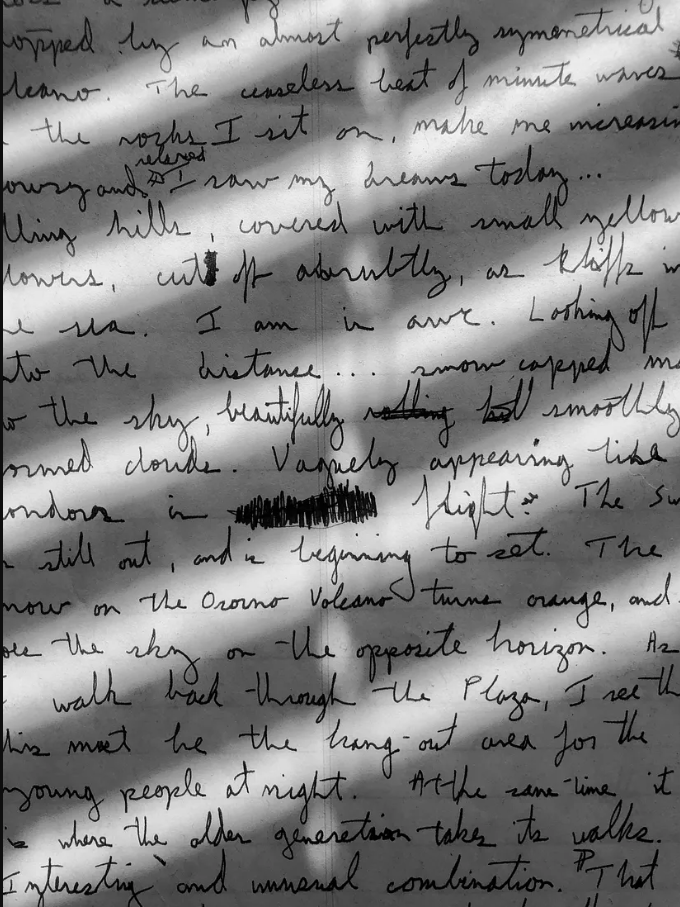 opped by an almost perfectly symmetrical
lcano. The ceaseless beat of minute waves
the rocks I sit on, make me increasin
relaxed
owsy and I saw my dreams today...
lling hills, covered with small yellow
lowers, cut off abrubtly, as kliffs in
e sea. I am in awe. Looking off
nto the distance... snow capped mo
o the sky, beautifully rolling smoothly
ormed clouds. Vaguely appearing like
ondors in flight. The Su
still out, and is beginning to set. The
now on the Osorno Volcano turns orange, and
oes the sky on the opposite horizon. As
I walk back through the Plaza, I see th
his must be the hang-out area for the
young people at night. At the same time it
is where the older generation takes its walks.
Interesting and unusual combination. That